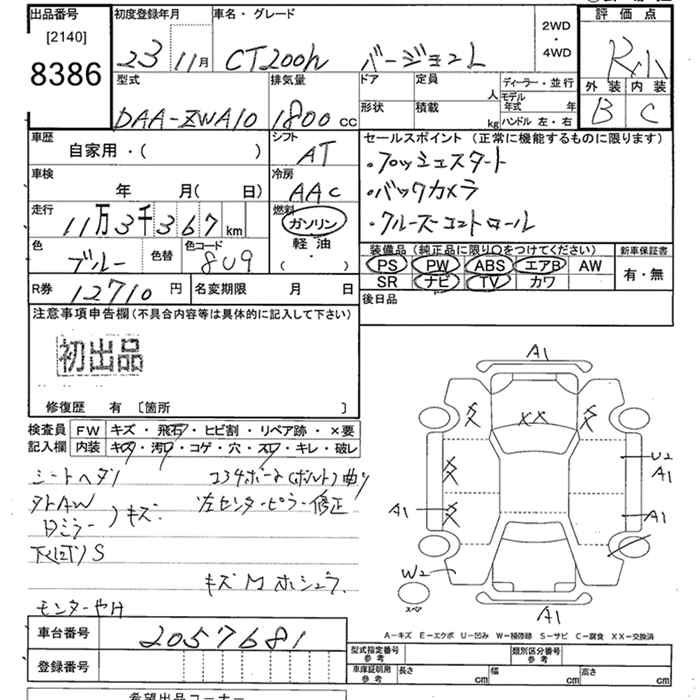 出品番号
[2140]
8386
初度登録年月
23 11月
車名・グレード
CT200h バージョンL
2WD
・
4WD
評価点
R
外装 内装
B C
型式
DAA-ZWA10
排気量
1800 cc
ドア
定員
人
形状
積載
kg
ディーラー・並行
モデル年式 年
ハンドル 左・右
車歴
自家用・( )
シフト
AT
車検
年 月( 日)
冷房
AAC
走行
11万3千367 km
燃料
ガソリン
軽油
( ・ )
色
ブルー
色替
色コード
8U9
R券 12710 円
名変期限 月 日
セールスポイント (正常に機能するものに限ります)
・プッシュスタート
・バックカメラ
・クルーズコントロール
装備品 (純正品に限り○をつけてください)
PS PW ABS エアB AW
SR ナビ TV カワ
新車保証書
有・無
後日品
注意事項申告欄(不具合内容等は具体的に記入して下さい)
初出品
修復歴 有 〔箇所 〕
検査員記入欄
FW キズ・飛石・ヒビ割・リペア跡・×要
内装 キズ・汚れ・コゲ・穴・スレ・キレ・破レ
シートヘタリ
タトAW
ミラー
)キズ
左センターピラー修正
下
S
キズ
A1
XX
A1
U2
A1
A1
W2
スペア
A1
A-キズ E-エクボ U-凹み W-補修跡 S-サビ C-腐食 XX-交換済
車台番号 2057681
登録番号
型式指定番号 参考
類別区分番号 参考
車庫証明用 参考
長さ cm
幅 cm
高さ cm
希望出品コーナー